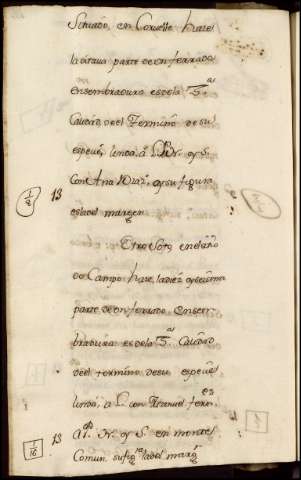 Situado, en Coruelle haze
la octaua parte de un ferrado
ensembradura es de la 3.ª
Calidad, deel Termino de su
espeue, lenda, a L. N. y S.
Con Ana Diaz, y su figura
es la del margen
1/8 13
Otro Soto, en el sitio
do Campo haze, la diez y seisma
parte de un ferrado en sem
bradura es de la 3.ª Calidad
deel termino de su espeue
linda, a L. con Manuel ferrs.
al P. N. y S. en montes
1/16 13
Comun, su fig.ra la del marg.n